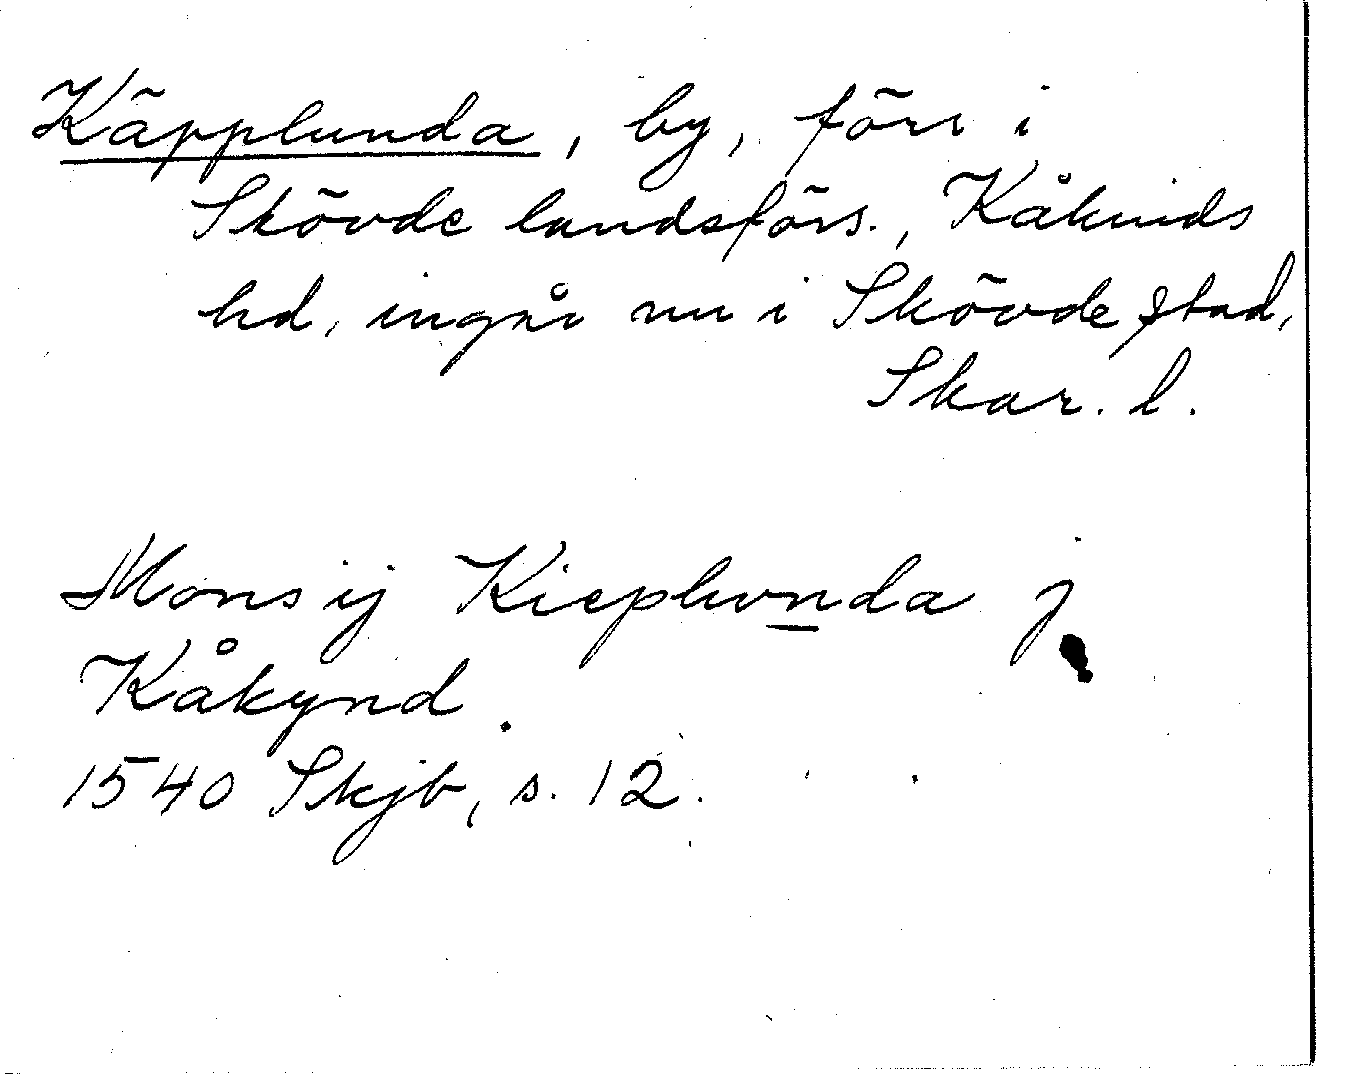 Käpplunda, by, förr i
Skövde landsförs., Kåkinds
hd, ingår nu i Skövde stad,
Skar. l.
Mons ij Kieplwnda j
Kåkynd.
1540 Skjb, s. 12.